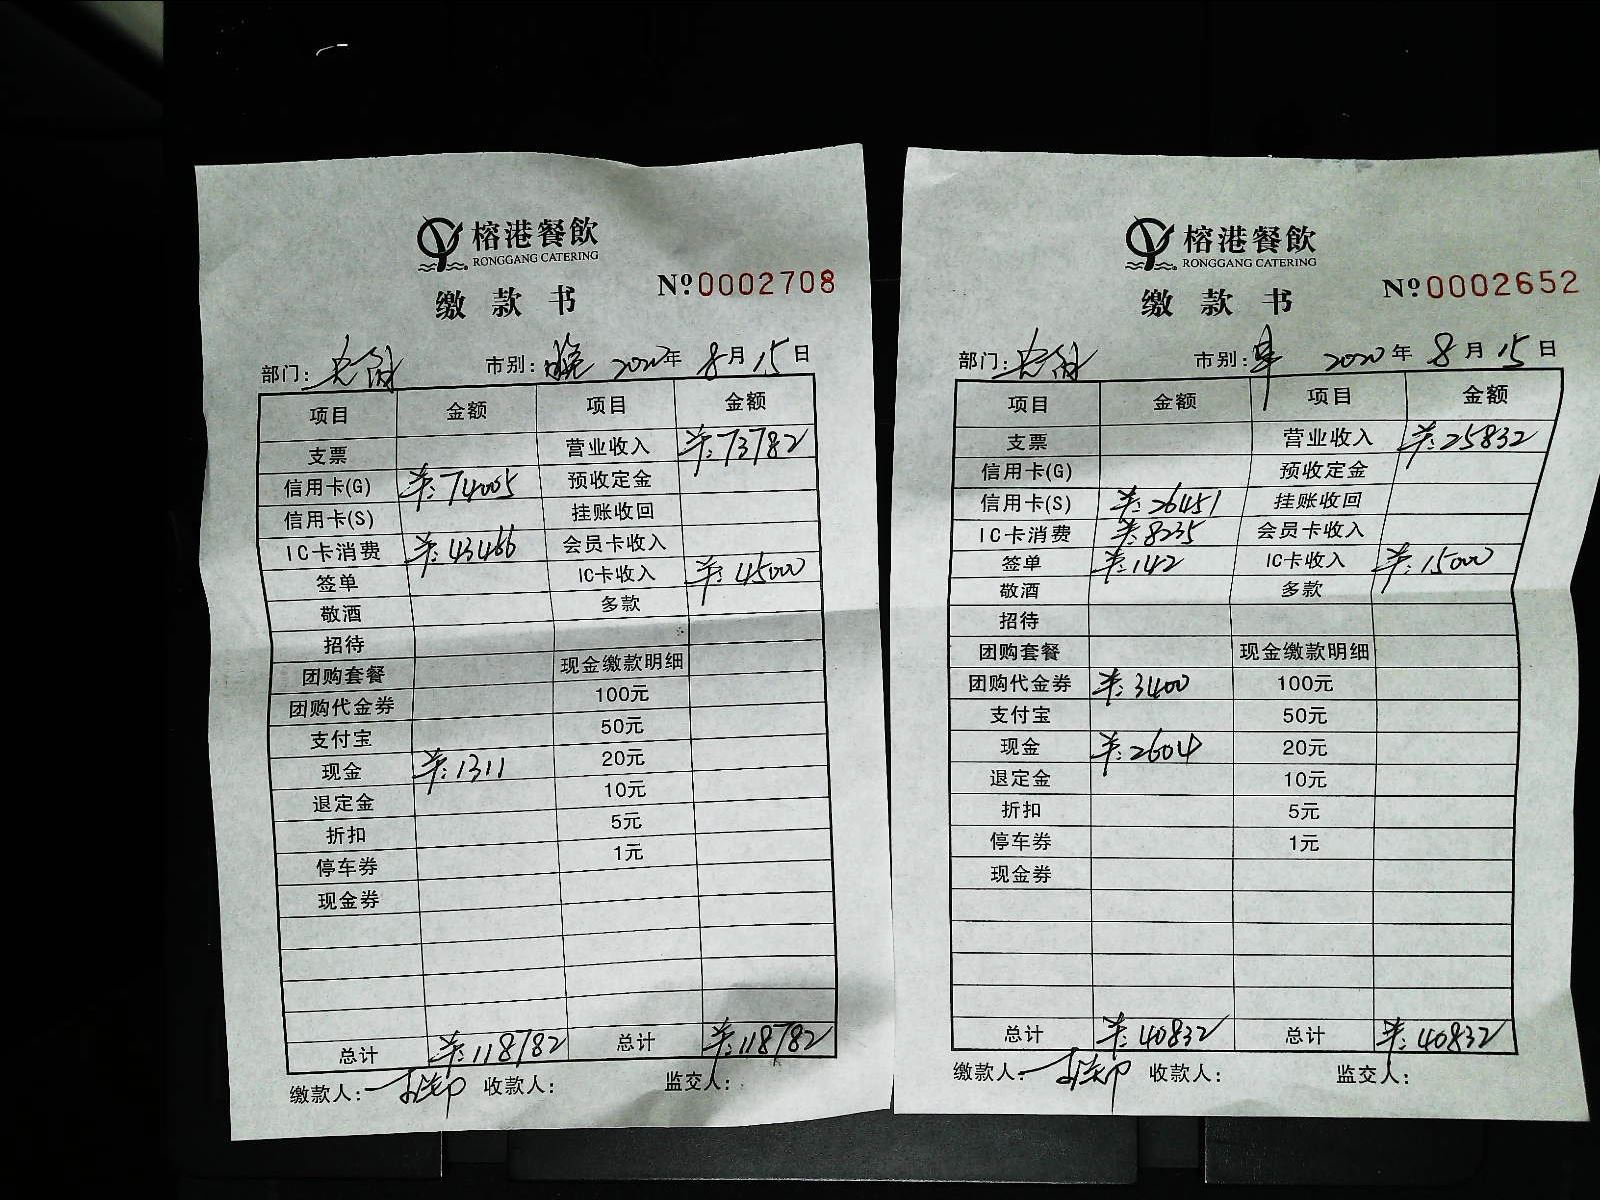 榕港餐飲
RONGGANG CATERING
缴款书
№0002708
部门: 市别:晚 2020年8月15日
项目 金额 项目 金额
支票 营业收入 ¥:73782
信用卡(G) ¥:74005 预收定金
信用卡(S) 挂账收回
IC卡消费 ¥:43466 会员卡收入
签单 IC卡收入 ¥:45000
敬酒 多款
招待
团购套餐 现金缴款明细
团购代金券 100元
支付宝 50元
现金 ¥:1311 20元
退定金 10元
折扣 5元
停车券 1元
现金券
总计 ¥:118782 总计 ¥:118782
缴款人: 收款人: 监交人:
榕港餐飲
RONGGANG CATERING
缴款书
№0002652
部门: 市别:早 2020年8月15日
项目 金额 项目 金额
支票 营业收入 ¥:25832
信用卡(G) 预收定金
信用卡(S) ¥:26451 挂账收回
IC卡消费 ¥:8235 会员卡收入
签单 ¥:142 IC卡收入 ¥:15000
敬酒 多款
招待
团购套餐 现金缴款明细
团购代金券 ¥:3400 100元
支付宝 50元
现金 ¥:2604 20元
退定金 10元
折扣 5元
停车券 1元
现金券
总计 ¥:40832 总计 ¥:40832
缴款人: 收款人: 监交人: